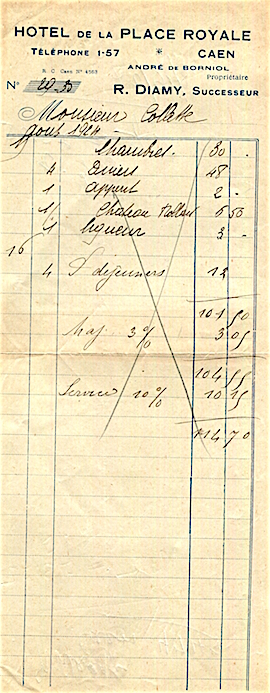 HOTEL DE LA PLACE ROYALE
TÉLÉPHONE 1-57 CAEN
R. C. Caen N° 4563 ANDRÉ DE BORNIOL
Propriétaire
N° 20.35 R. DIAMY, SUCCESSEUR
Monsieur Collette
Aout 1924
Chambres. 30 -
4 Diners 48
1 appert 2 -
1/ Chateau 6 50
4 liqueur 3 -
16
4 P dejeuners 12
101 50
Maj 3% 3 05
104 55
Service 10% 10 15
114 70